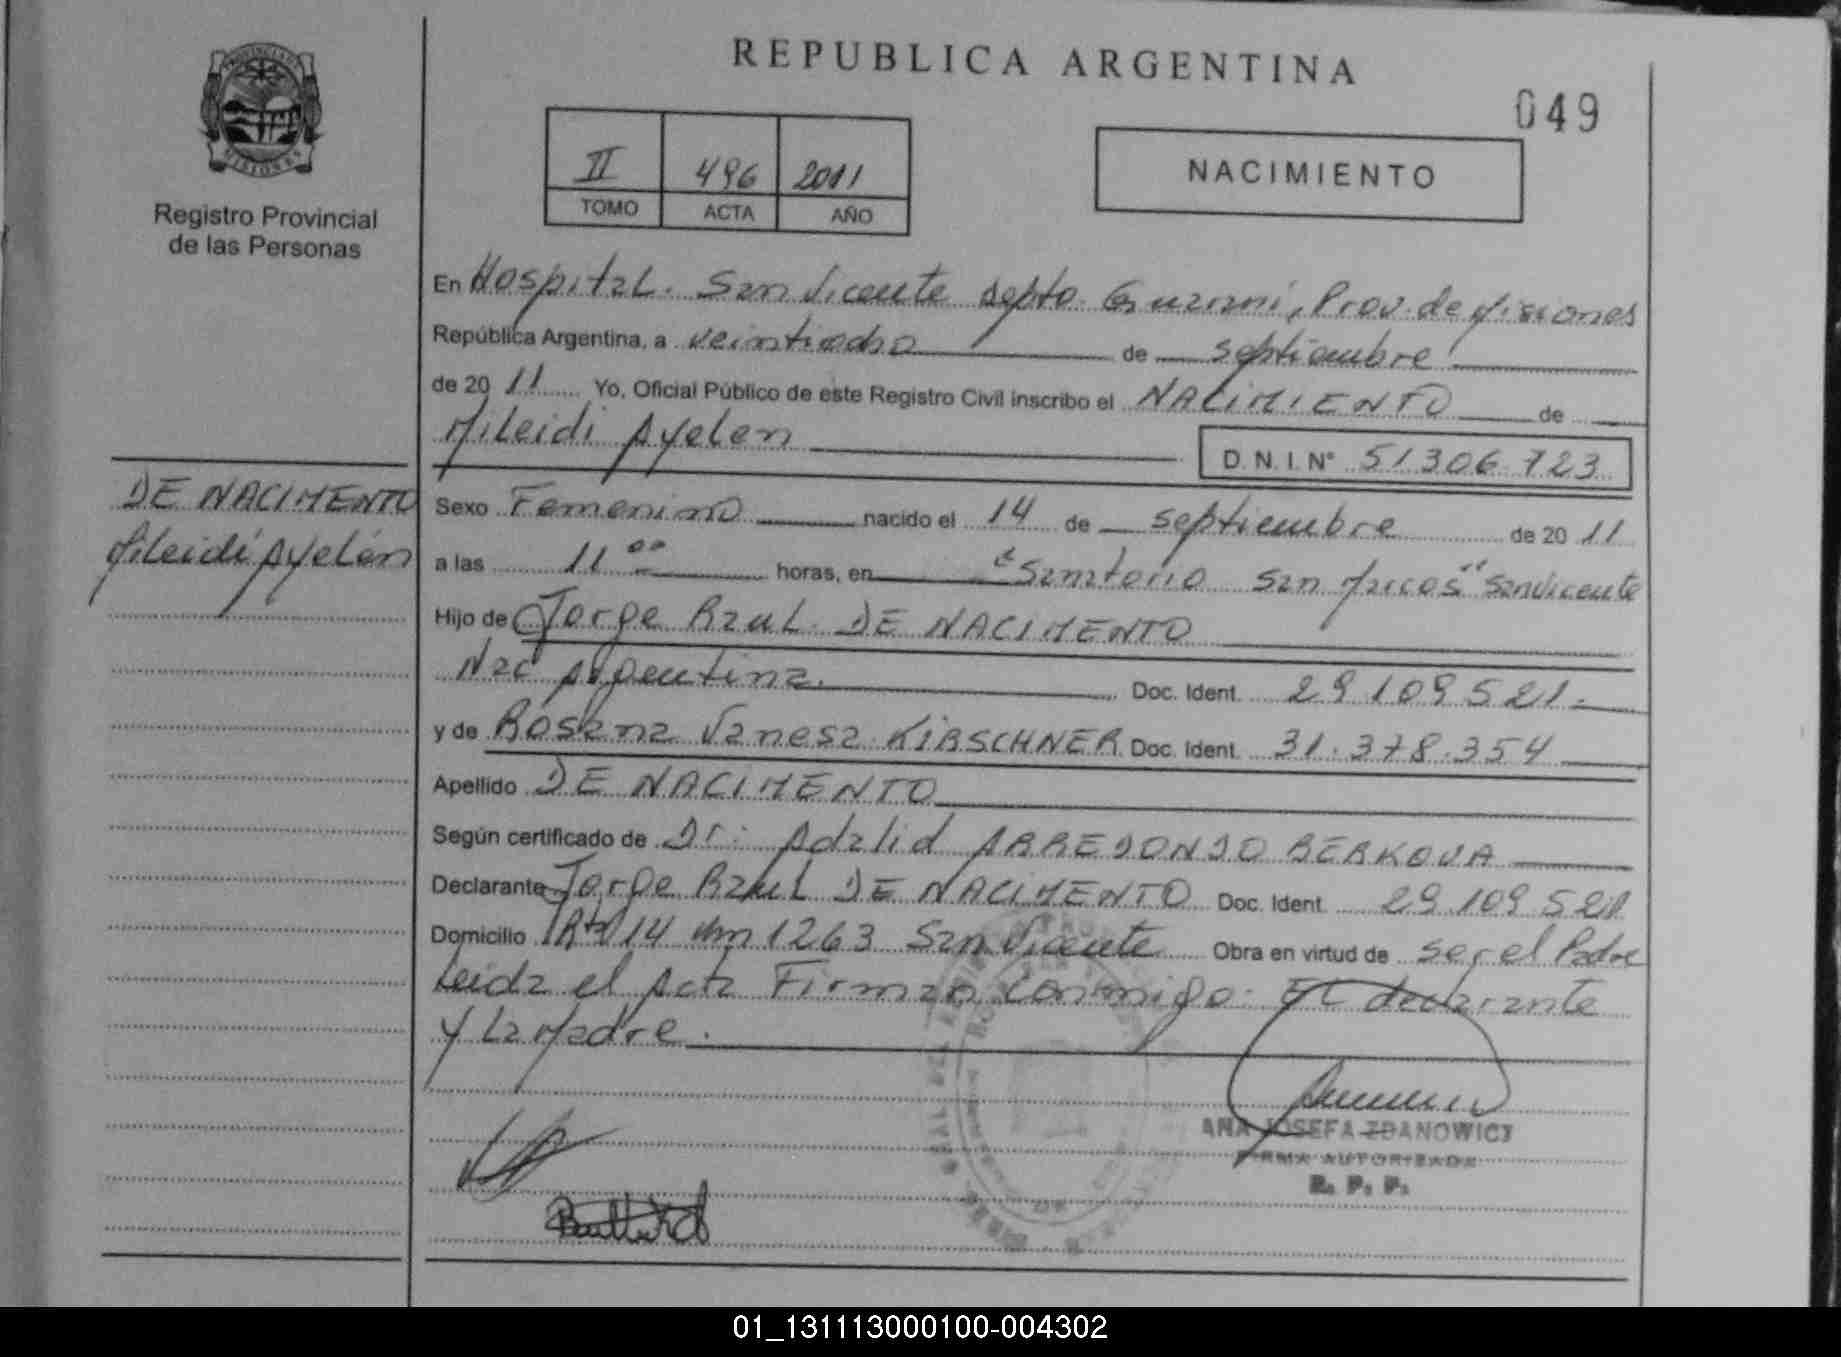 REPUBLICA ARGENTINA
049
PROVINCIA DE
MISIONES
Registro Provincial
de las Personas
II 496 2011
TOMO ACTA AÑO
NACIMIENTO
En Hospital. San Vicente Depto. Guarani, Prov. de Misiones
República Argentina, a veintiocho de septiembre
de 20 11 Yo, Oficial Público de este Registro Civil inscribo el NACIMIENTO de
Mileidi Ayelen
D.N.I. N° 51306.723
DE NACIMENTO
Mileidi Ayelén
Sexo Femenino nacido el 14 de septiembre de 20 11
a las 11 00 horas, en "Sanatorio San Marcos" San Vicente
Hijo de Jorge Raul DE NACIMENTO
Nac Argentina. Doc. Ident. 29 109 521.
y de Rosana Vanesa KIRSCHNER Doc. Ident. 31.378.354
Apellido DE NACIMENTO
Según certificado de Dr: Adalid ARREDONDO BERKOVA
Declarante Jorge Raul DE NACIMENTO Doc. Ident. 29 109 521
Domicilio Rta 14 km 1263 San Vicente Obra en virtud de ser el Padre
Leida el Acta Firman Conmigo: El declarante
y La Madre.
ANA JOSEFA ZDANOWICZ
FIRMA AUTORIZADA
R. P. P.
01_131113000100-004302